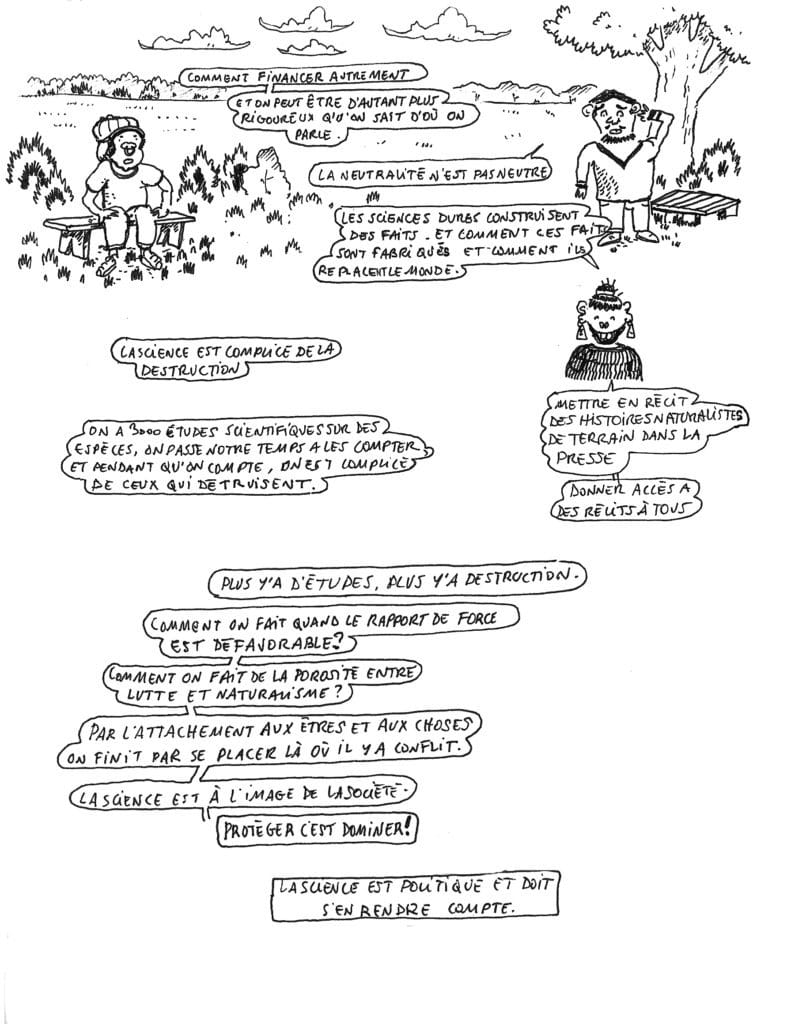 COMMENT FINANCER AUTREMENT
ET ON PEUT ÊTRE D'AUTANT PLUS
RIGOUREUX QU'ON SAIT D'OÙ ON
PARLE.
LA NEUTRALITÉ N'EST PAS NEUTRE
LES SCIENCES DURES CONSTRUISENT
DES FAITS. ET COMMENT CES FAITS
SONT FABRIQUÉS ET COMMENT ILS
REPLACENT LE MONDE.
LA SCIENCE EST COMPLICE DE LA
DESTRUCTION
METTRE EN RÉCIT
DES HISTOIRES NATURALISTES
DE TERRAIN DANS LA
PRESSE
DONNER ACCÈS A
DES RÉCITS À TOUS
ON A 3000 ÉTUDES SCIENTIFIQUES SUR DES
ESPÈCES, ON PASSE NOTRE TEMPS A LES COMPTER
ET PENDANT QU'ON COMPTE, ON EST COMPLICE
DE CEUX QUI DÉTRUISENT.
PLUS Y'A D'ÉTUDES, PLUS Y'A DESTRUCTION.
COMMENT ON FAIT QUAND LE RAPPORT DE FORCE
EST DÉFAVORABLE?
COMMENT ON FAIT DE LA POROSITÉ ENTRE
LUTTE ET NATURALISME?
PAR L'ATTACHEMENT AUX ÊTRES ET AUX CHOSES
ON FINIT PAR SE PLACER LÀ OÙ IL Y A CONFLIT.
LA SCIENCE EST À L'IMAGE DE LA SOCIÉTÉ.
PROTÉGER C'EST DOMINER!
LA SCIENCE EST POLITIQUE ET DOIT
S'EN RENDRE COMPTE.